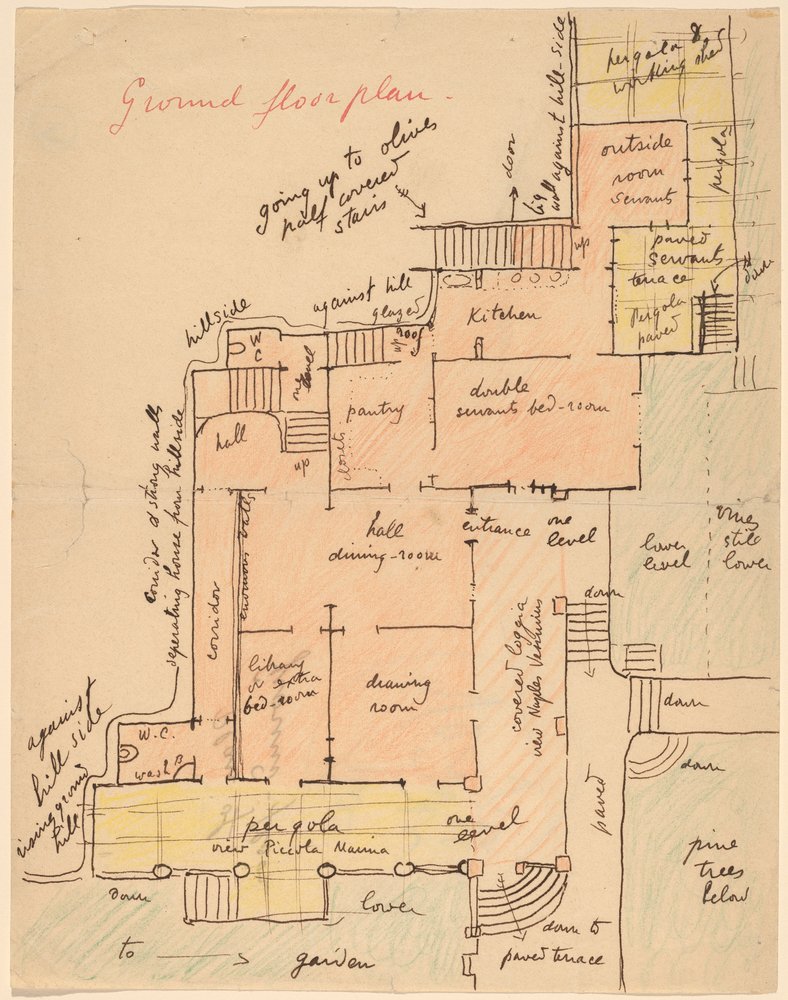 Ground floor plan.
pergola &
working shed
pergola
outside
room
servants
big
wall against hill-side
door
going up to olives
half covered
stairs
up
paved
servants
terrace
Pergola
paved
down
against hill
glazed
roof
up
hillside
W
C
one
level
Kitchen
double
servants bed-room
pantry
closets
hall
up
corridor & strong walls
seperating house from hillside
corridor
enormous vases
hall
dining-room
entrance
one
level
lower
level
vines
still
lower
down
library
or extra
bed-room
drawing
room
covered loggia
view Naples Vesuvius
down
down
against
hill side
rising ground
hill
W.C.
wash B
paved
pergola
view Piccola Marina
one
level
pine
trees
below
down
lower
down to
paved terrace
to
garden